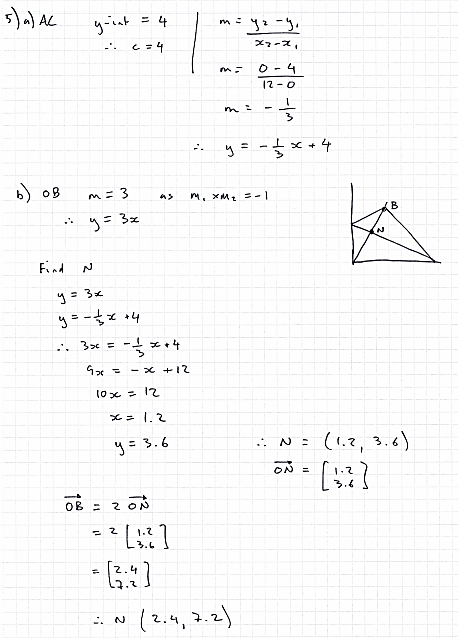 5) a) AC y-int = 4
∴ c = 4
m = y₂ - y₁ / x₂ - x₁
m = 0 - 4 / 12 - 0
m = - 1/3
∴ y = - 1/3 x + 4
b) OB m = 3 as m₁ × m₂ = -1
∴ y = 3x
B
N
Find N
y = 3x
y = - 1/3 x + 4
∴ 3x = - 1/3 x + 4
9x = - x + 12
10x = 12
x = 1.2
y = 3.6
∴ N = (1.2, 3.6)
ON→ = [1.2 3.6]
OB→ = 2 ON→
= 2 [1.2 3.6]
= [2.4 7.2]
∴ N (2.4, 7.2)